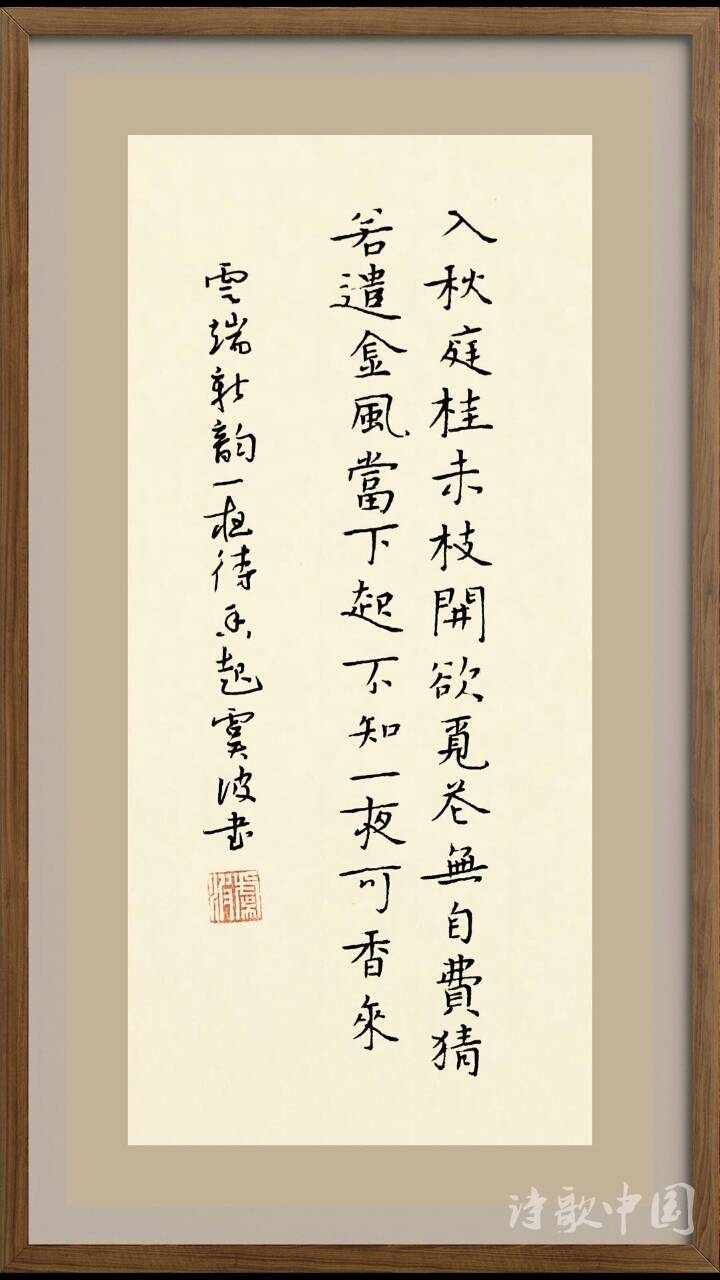 入秋庭桂未枝開欲覓花無自費猜
若遣金風當下起不知一夜可香來
雲端新韵一夜待香起虞波書
虞波
诗歌中国